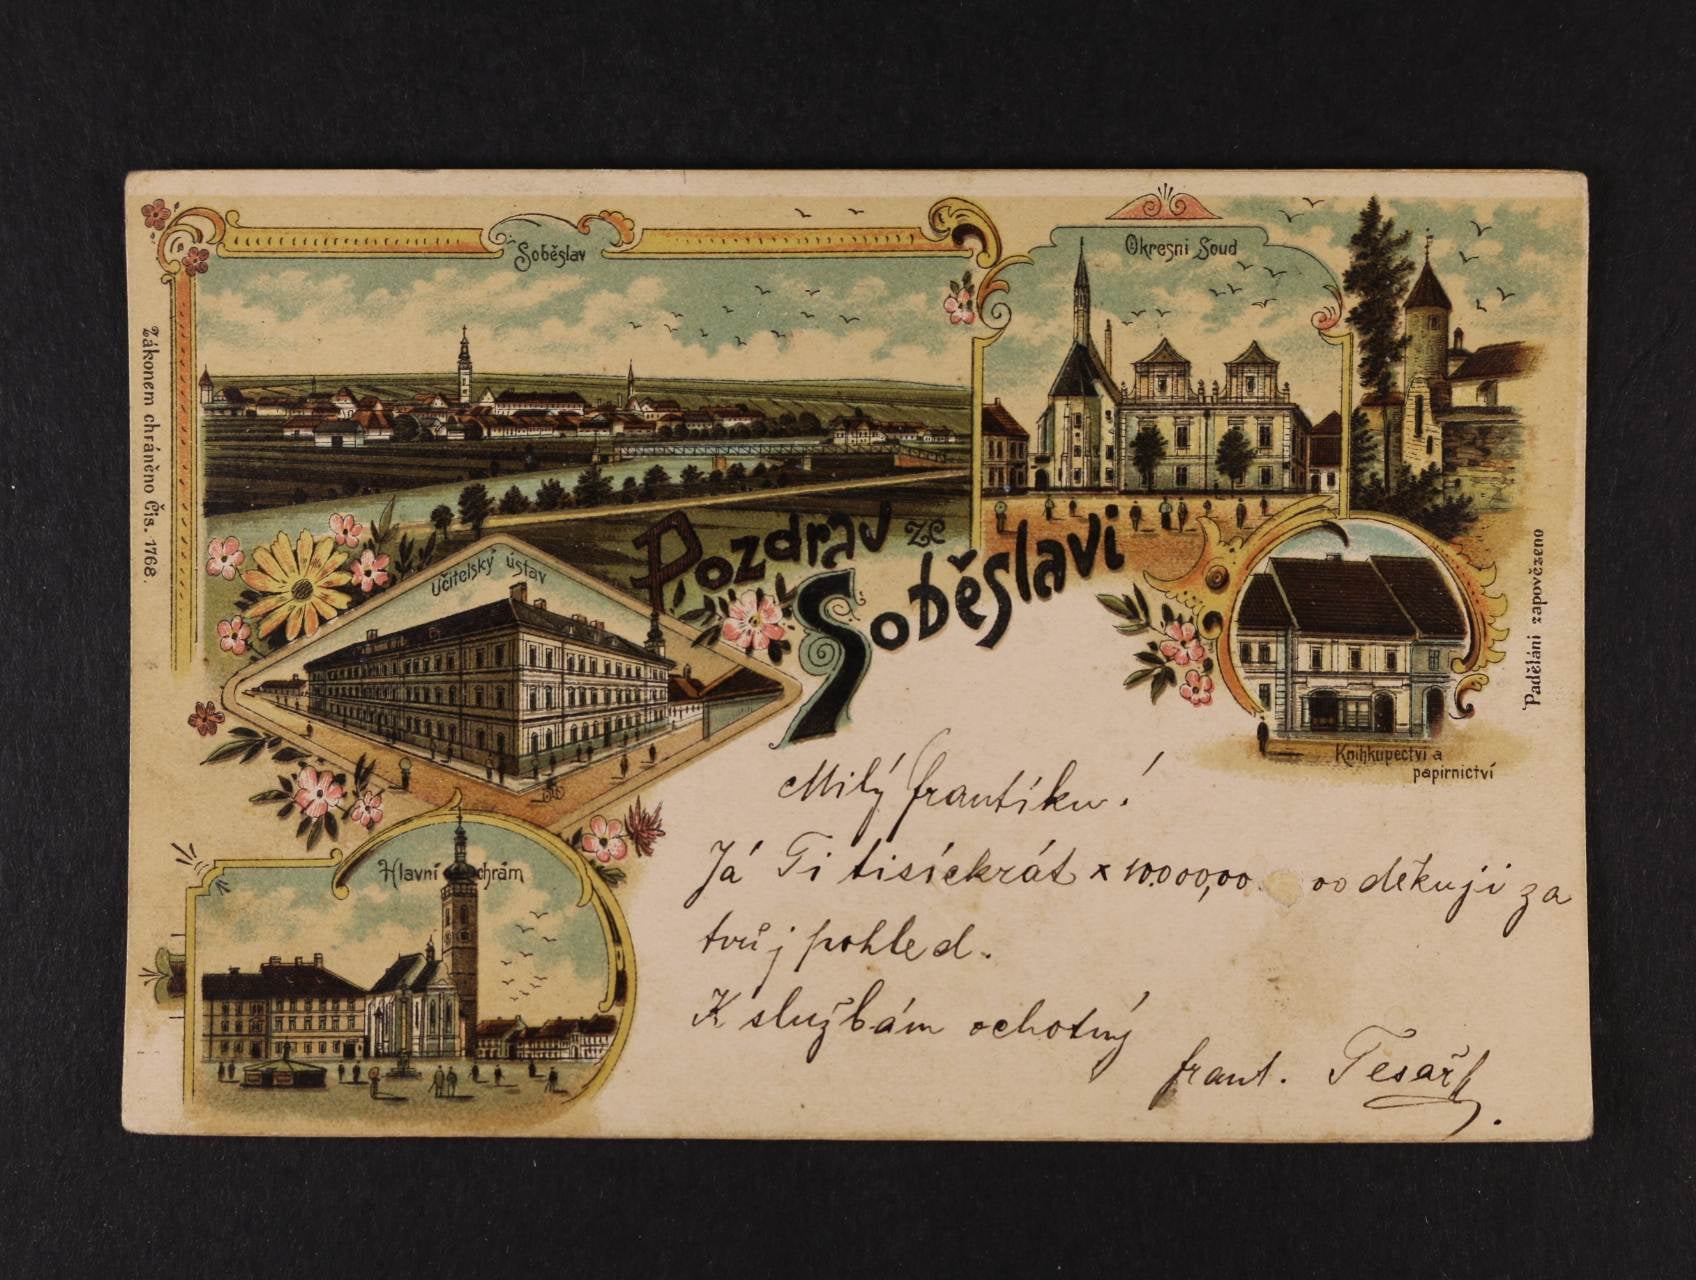 Soběslav
Okresni Soud
Zákonem chráněno Čis. 1768.
Pozdrav ze
Soběslavi
Učitelský ústav
Padělání zapovězeno
Knihkupectví a
papirnictví
Hlavní chrám
Milý františku!
Já Ti tisíckrát x 10.000,00 00 děkuji za
tvůj pohled.
K službám ochotný
frant. Tesař